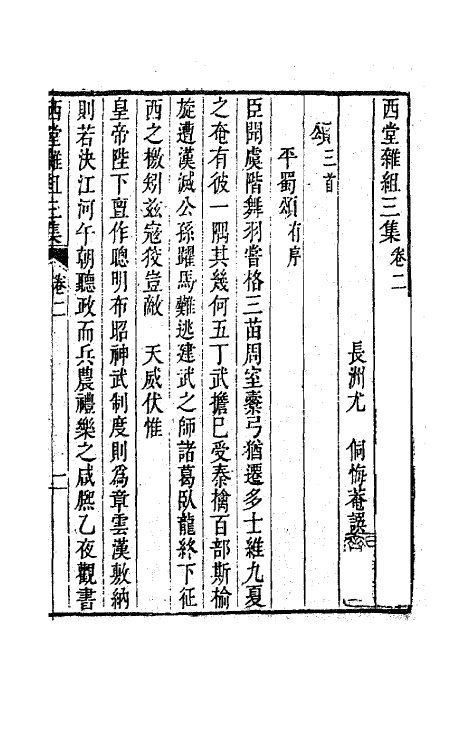 西堂雜組三集卷二
長洲尤　侗悔菴譔
頌三首
平蜀頌有序
臣聞虞階舞羽嘗格三苗周室櫜弓猶遷多士維九夏
之奄有彼一隅其幾何五丁武擔已受秦擒百部斯榆
旋遭漢滅公孫躍馬難逃建武之師諸葛臥龍終下征
西之檄矧兹寇狡豈敵　天威伏惟
皇帝陛下亶作聰明布昭神武制度則為章雲漢敷納
則若決江河午朝聽政而兵農禮樂之咸熈乙夜觀書
西堂雜組三集　卷二　一